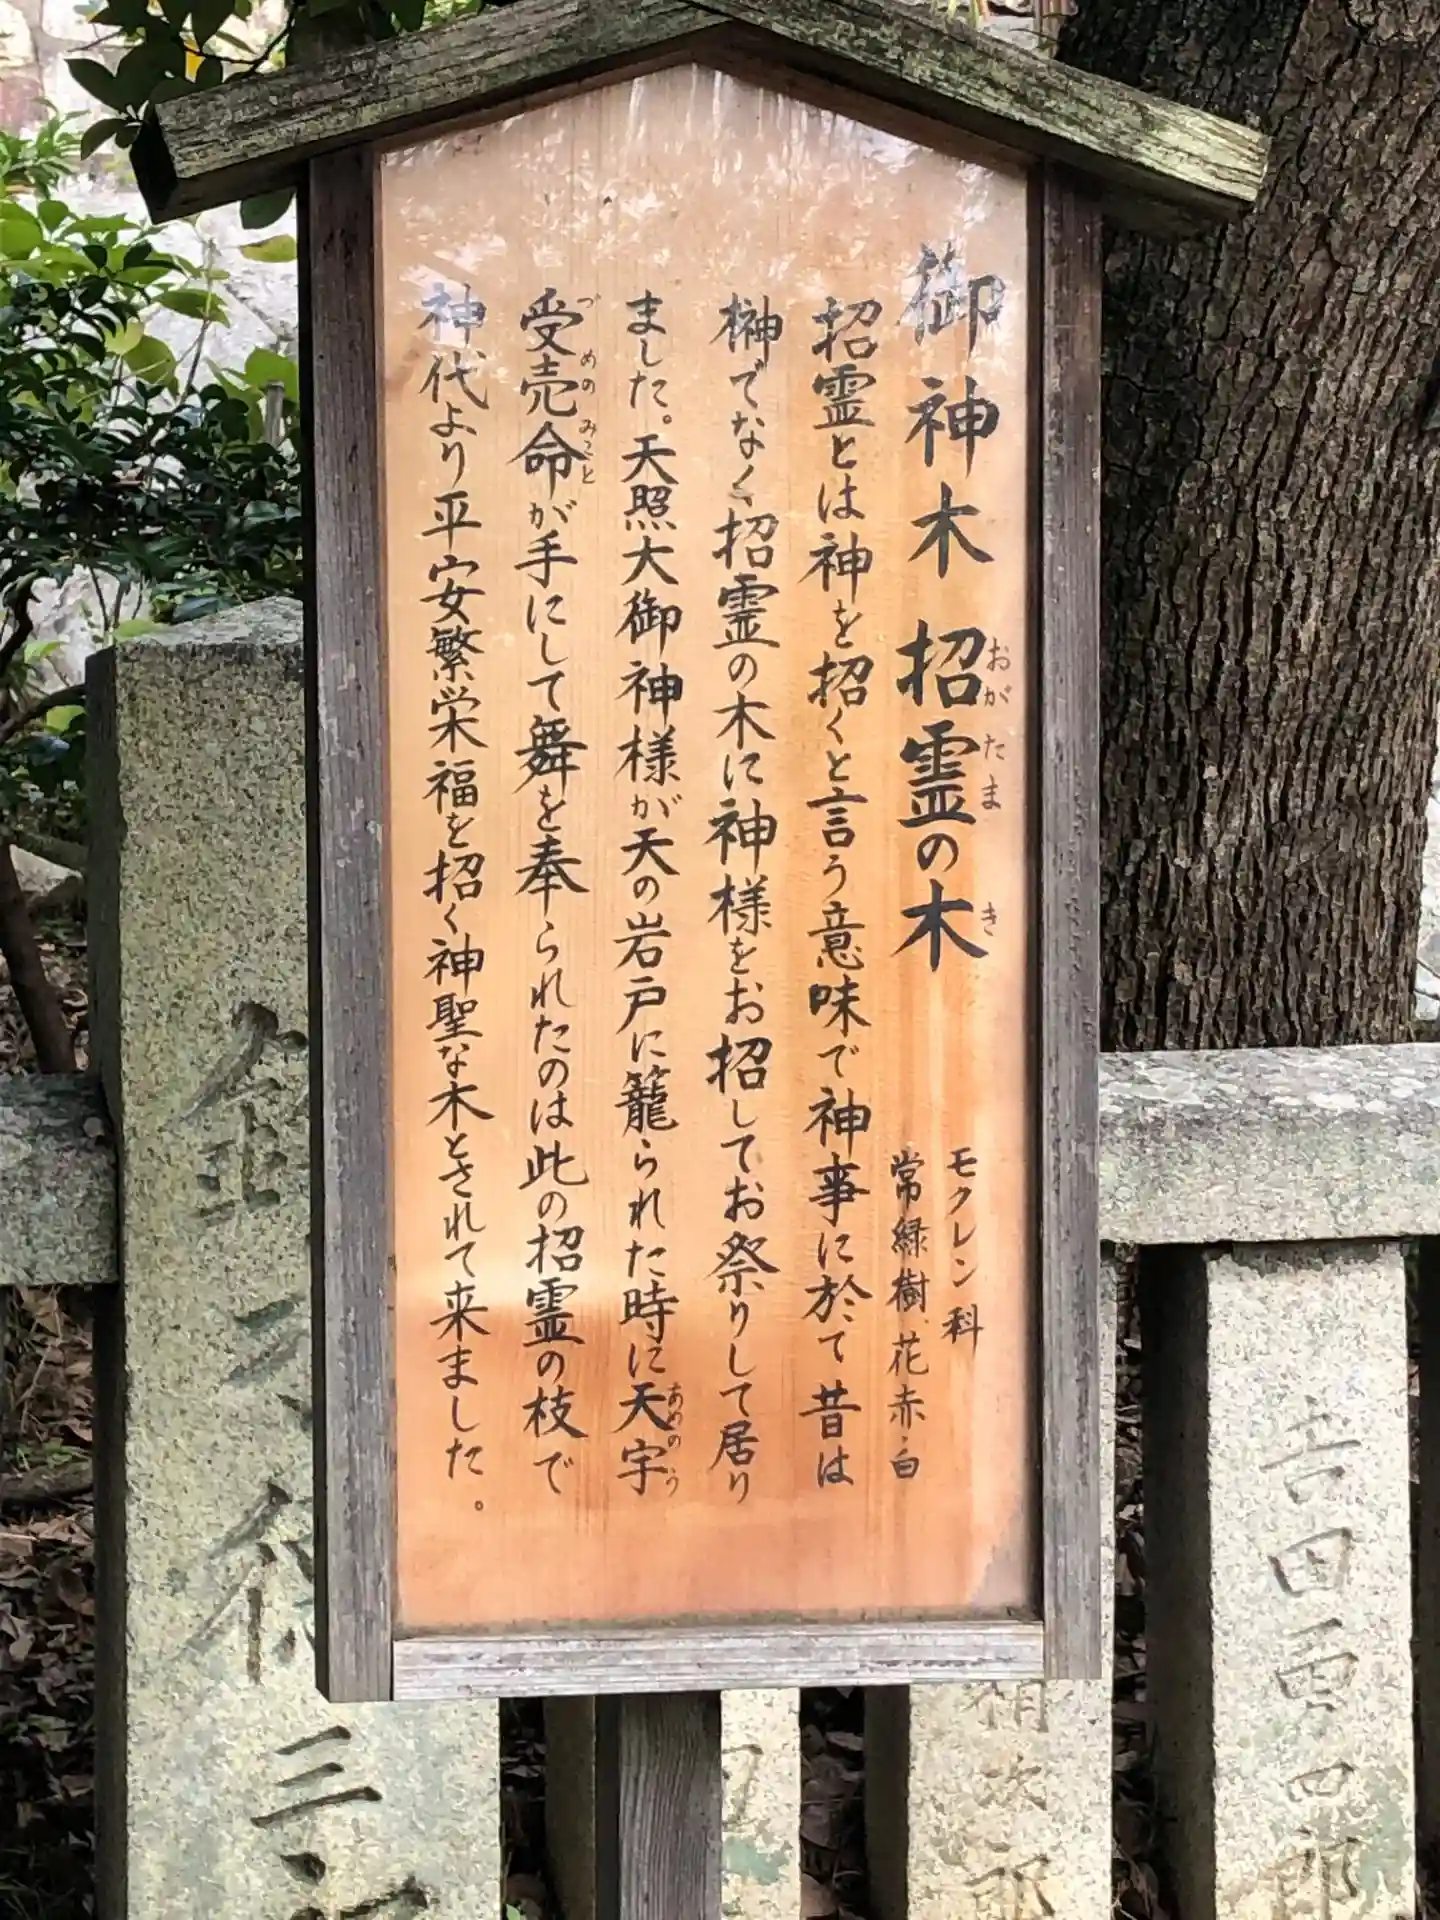 御神木 招霊の木
おがたま き
モクレン科
常緑樹、花赤・白
招霊とは神を招くと言う意味で神事に於て昔は
榊でなく招霊の木に神様をお招してお祭りして居り
ました。天照大御神様が天の岩戸に籠られた時に天宇
あめのう
受売命が手にして舞を奉られたのは此の招霊の枝で
づめのみこと
神代より平安繁栄福を招く神聖な木とされて来ました。
吉田勇四郎
次郎
三